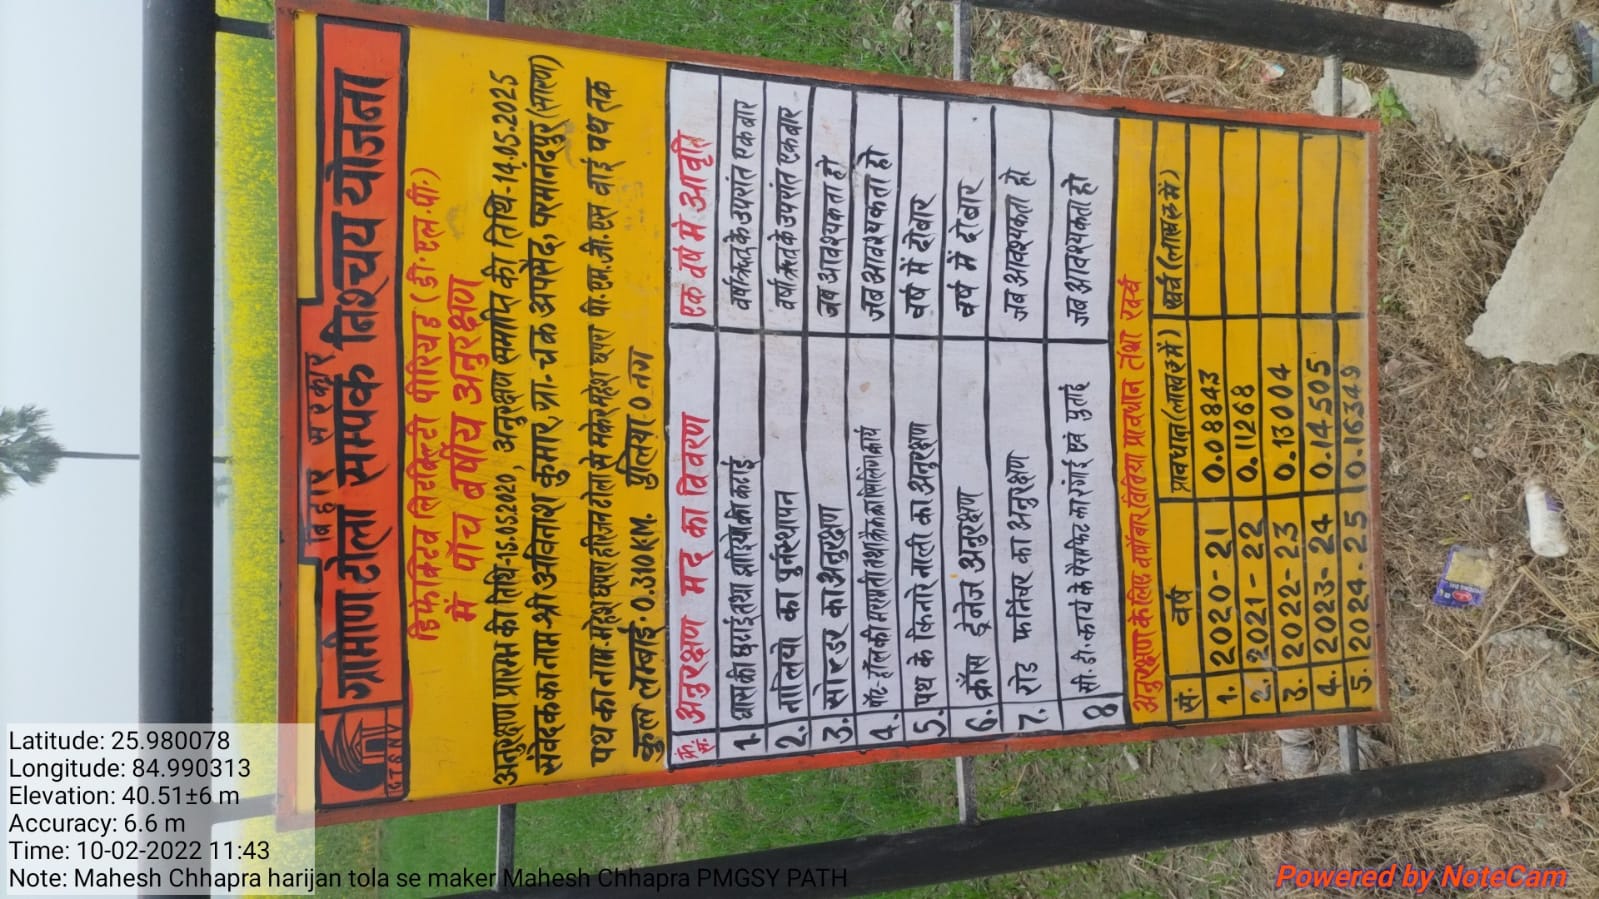 बिहार सरकार
ग्रामीण टोला सम्पर्क निश्चय योजना
GTSNY
डिफेक्टिव लिएबिल्टी पीरियड (डी.एल.पी.)
में पाँच वर्षीय अनुरक्षण
अनुरक्षण प्रारम्भ की तिथि-15.05.2020, अनुरक्षण समाप्ति की तिथि-14.05.2025
संवेदक का नाम-श्री अविनाश कुमार, ग्रा-चक अपसैद, परमानंदपुर (सारण)
पथ का नाम-महेश छपरा हरिजन टोला से मकेर महेश छपरा पी.एम.जी.एस वाई पथ तक
कुल लम्बाई-0.310KM. पुलिया 0 नग
क्र. सं. अनुरक्षण मद का विवरण एक वर्ष मे आवृति
1. घास की छटाई तथा झाड़ियो की कटाई वर्षा ऋतु के उपरांत एक बार
2. नालियो का पुर्नस्थापन वर्षा ऋतु के उपरांत एक बार
3. सोल्डर का अनुरक्षण जब आवश्यकता हो
4. पॉट-हॉल की मरम्मती तथा क्रैक का सिलिंग कार्य जब आवश्यकता हो
5. पथ के किनारे नाली का अनुरक्षण वर्ष में दो बार
6. क्रॉस ड्रेनेज अनुरक्षण वर्ष में दो बार
7. रोड फर्निचर का अनुरक्षण जब आवश्यकता हो
8 सी.डी. कार्य के पैरापेट का रंगाई एवं पुताई जब आवश्यकता हो
अनुरक्षण के लिए वर्षोंवार वित्तिय प्रावधान तथा खर्च
सं. वर्ष प्रावधान (लाख रु में) खर्च (लाख रु में)
1. 2020-21 0.08843
2. 2021-22 0.11268
3. 2022-23 0.13004
4. 2023-24 0.14505
5. 2024-25 0.16349
Latitude: 25.980078
Longitude: 84.990313
Elevation: 40.51±6 m
Accuracy: 6.6 m
Time: 10-02-2022 11:43
Note: Mahesh Chhapra harijan tola se maker Mahesh Chhapra PMGSY PATH
Powered by NoteCam